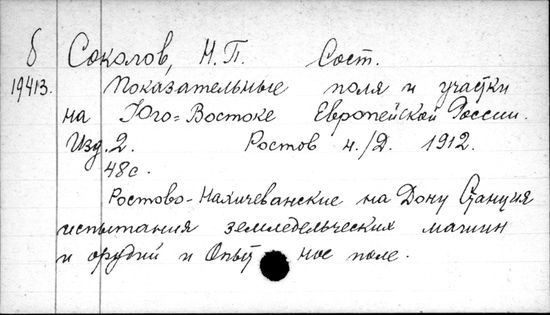 б Соколов, Н.П. Сост.
19413. Показательные поля и участки
на Юго-Востоке Европейской России.
Изд. 2. Ростов н./Д. 1912.
48с.
Ростово-Нахичеванские на Дону Станция
испытания земледельческих машин
и орудий и Опытное поле.